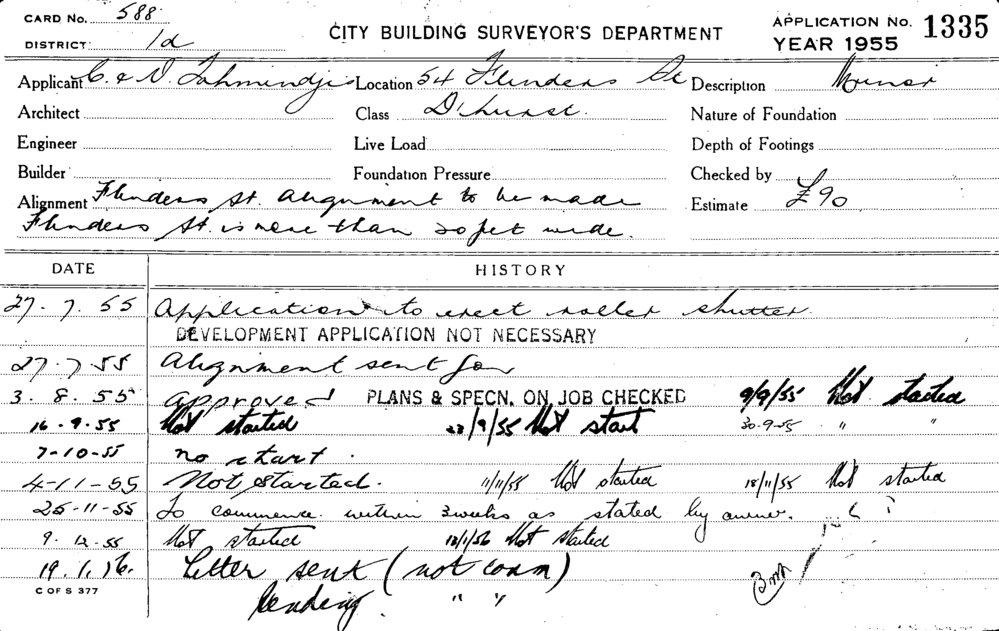 CARD No. 588
DISTRICT: 1d
CITY BUILDING SURVEYOR'S DEPARTMENT
APPLICATION No. 1335
YEAR 1955
Applicant C. & V. Tahmindjis Location 54 Flinders St Description Minor
Architect Class D'hurst. Nature of Foundation
Engineer Live Load Depth of Footings
Builder Foundation Pressure Checked by
Alignment Flinders St. Alignment to be made Estimate £90
Flinders St. is more than 20 feet wide.
DATE HISTORY
27. 7. 55 Application to erect roller shutter.
DEVELOPMENT APPLICATION NOT NECESSARY
27.7.55 Alignment sent for
3. 8. 55 Approved PLANS & SPECN. ON JOB CHECKED 9/9/55 Not started
16.9.55 Not started 23/9/55 Not start 30.9.55 " "
7-10-55 no start.
4-11-55 Not started. 11/11/55 Not started 18/11/55 Not started
25-11-55 To commence within 3 weeks as stated by owner.
9. 12. 55 Not started 13/1/56 Not started
19.1.56. Letter sent (not comm)
pending " " 3m
C OF S 377